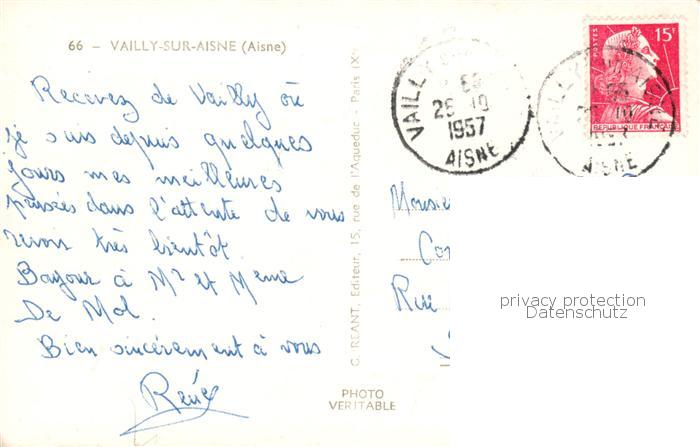 66 — VAILLY-SUR-AISNE (Aisne)
Recevez de Vailly où
je suis depuis quelques
jours mes meilleures
pensées dans l'attente de vous
revoir très bientôt.
Bonjour à Mr et Meme
De Mol.
Bien sincèrement à vous
René
G. REANT, Editeur, 15, rue de l'Aqueduc - Paris (X
PHOTO
VERITABLE
VAILLY
26 10
1957
AISNE
POSTES
15F
REPUBLIQUE FRANÇAISE
AISNE
Monsie
Rue
privacy protection
Datenschutz